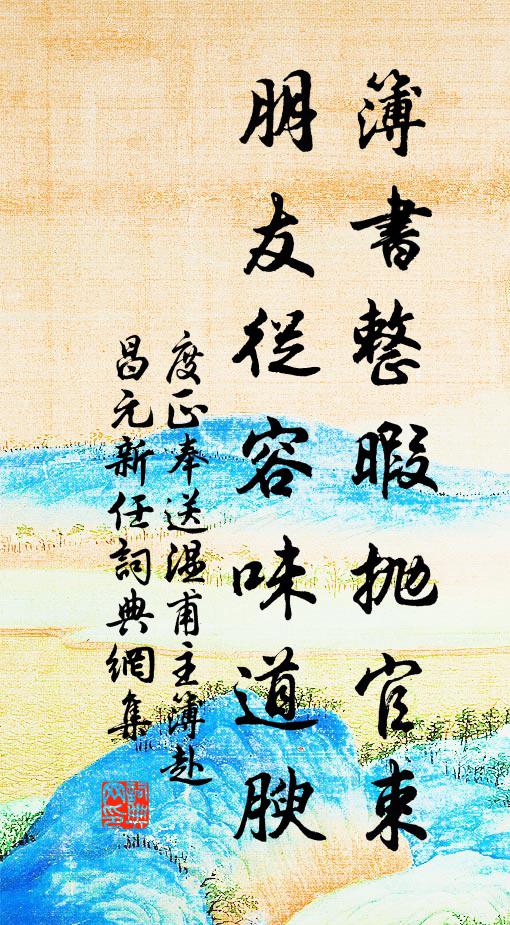 簿書整暇拋官束
朋友從容味道腴
度正奉送溫甫主簿赴
昌元新任詞典網集